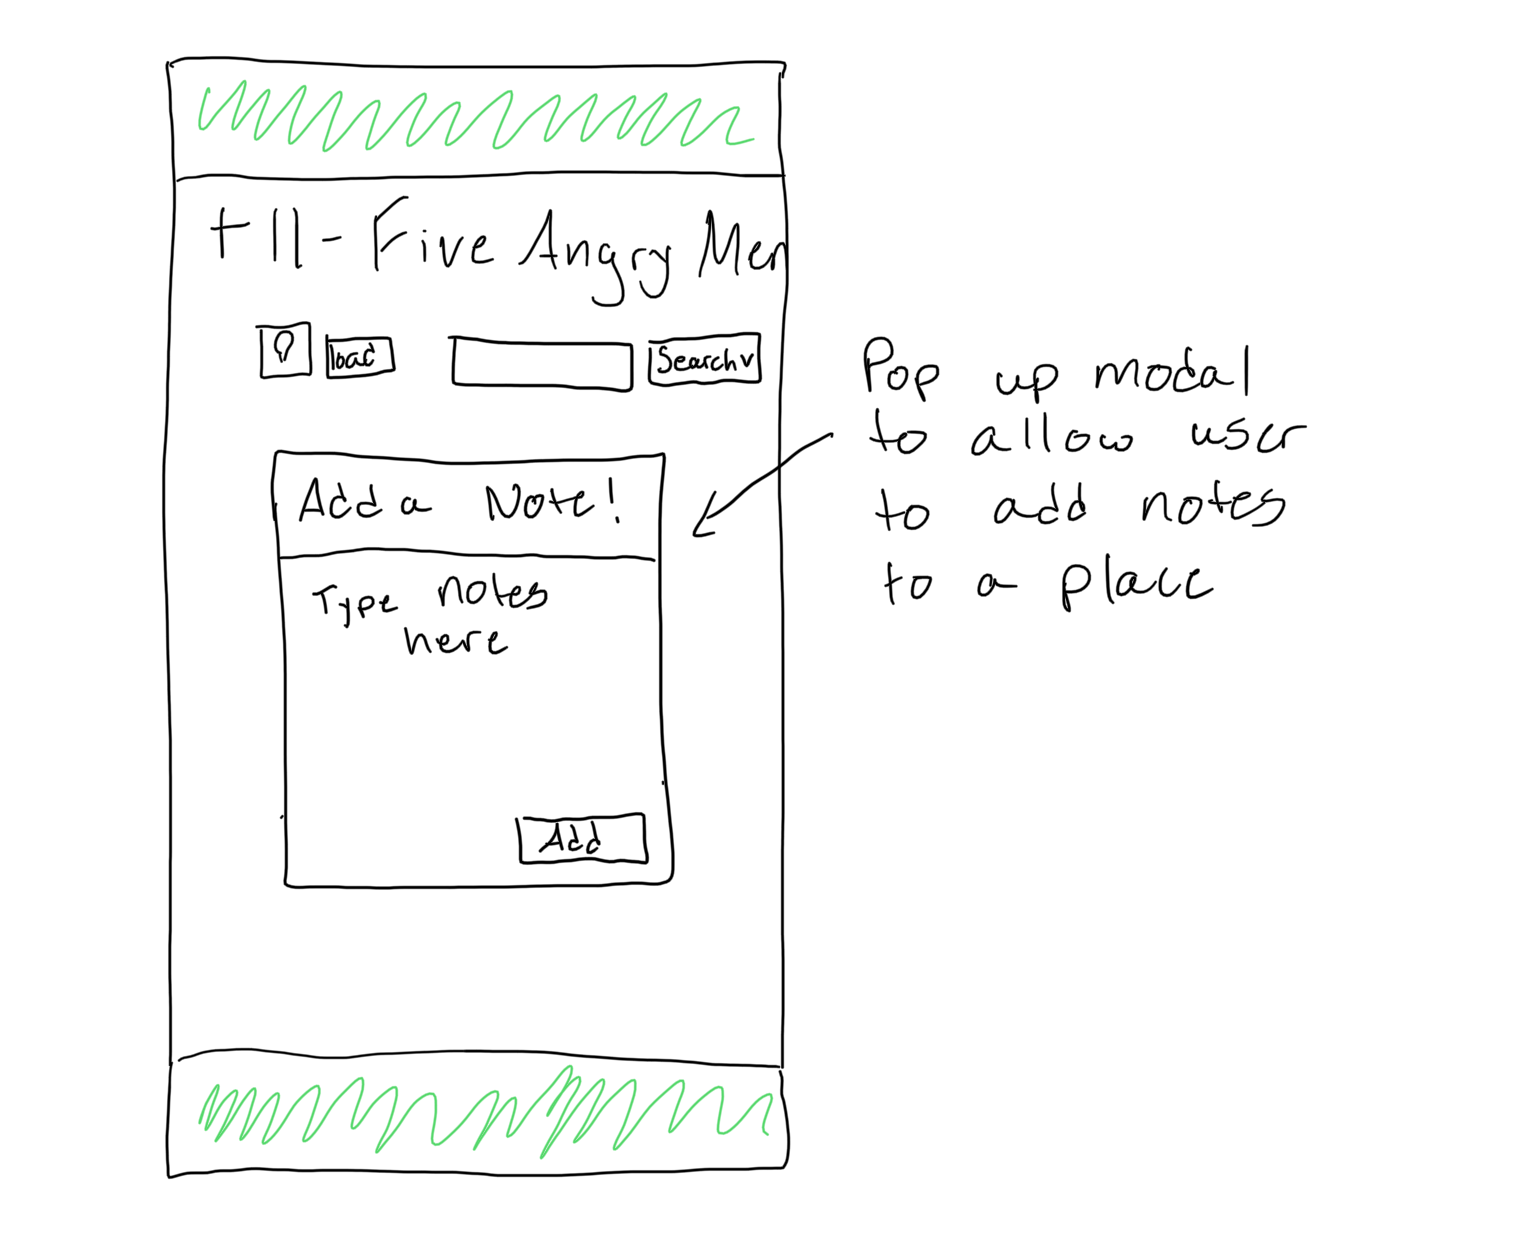 t11 - Five Angry Men
load
Search v
Add a Note!
Type notes
here
Add
Pop up modal
to allow user
to add notes
to a place